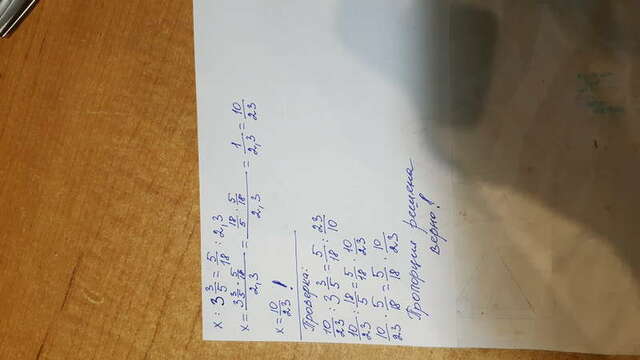 x : 3 3/5 = 5/18 : 2,3
x = (3 3/5 · 5/18)/2,3 = (18/5 · 5/18)/2,3 = 1/2,3 = 10/23
x = 10/23 !
Проверка:
10/23 : 3 3/5 = 5/18 : 23/10
10/23 : 18/5 = 5/18 · 10/23
10/23 · 5/18 = 5/18 · 10/23
Пропорция решена
верно!